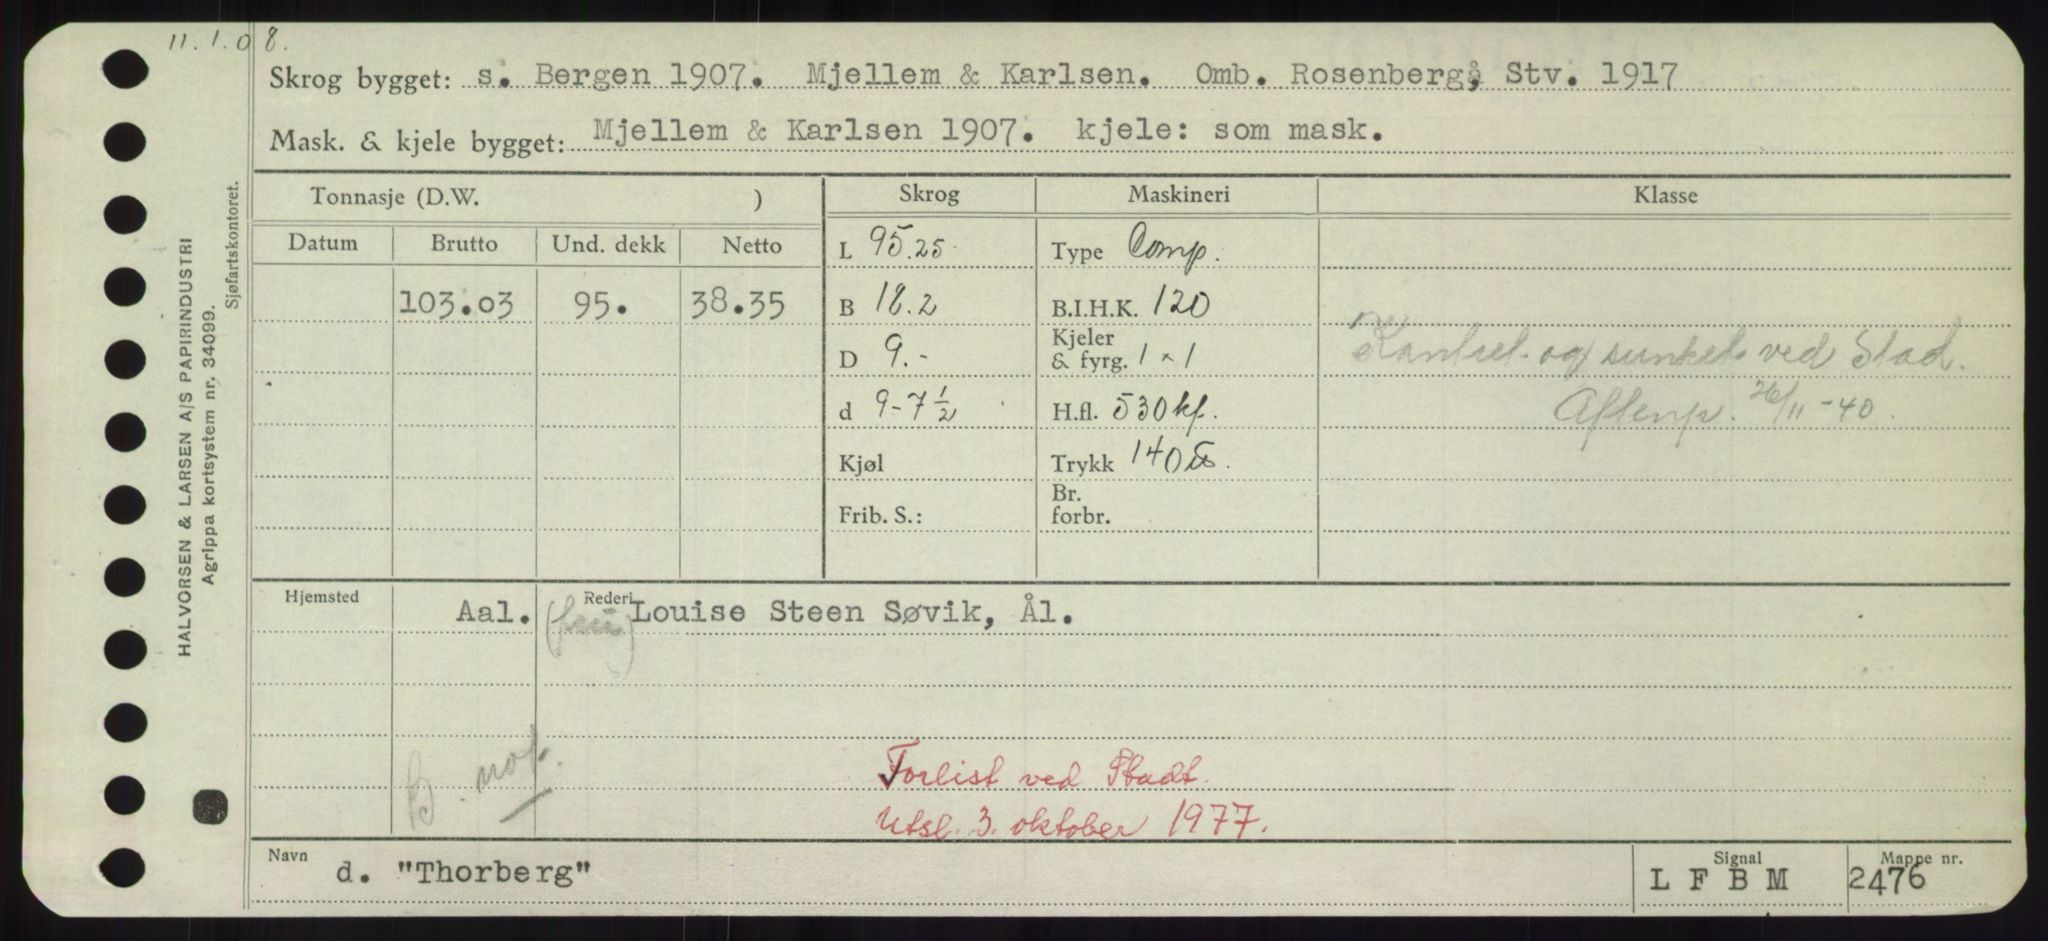 11.1.08.
Skrog bygget: s. Bergen 1907. Mjellem & Karlsen. Omb. Rosenberg, Stv. 1917
Mask. & kjele bygget: Mjellem & Karlsen 1907. kjele: som mask.
Tonnasje (D.W. ) Skrog Maskineri Klasse
Datum Brutto Und. dekk Netto L 95.25 Type Comp.
103.03 95. 38.35 B 18.2 B.I.H.K. 120
D 9.- Kjeler & fyrg. 1 × 1 Kantret og sunket ved Stad.
d 9-7 1/2 H.fl. 530 kf. Aftenp. 26/11-40.
Kjøl Trykk 140 ℔.
Frib. S.: Br. forbr.
Hjemsted Aal. Rederi Louise Steen Søvik, Ål.
B. not.
Forlist ved Stadt.
Utsl. 3. oktober 1977.
Navn d. "Thorberg" Signal L F B M Mappe nr. 2476
HALVORSEN & LARSEN A/S PAPIRINDUSTRI
Agrippa kortsystem nr. 34099.
Sjøfartskontoret.